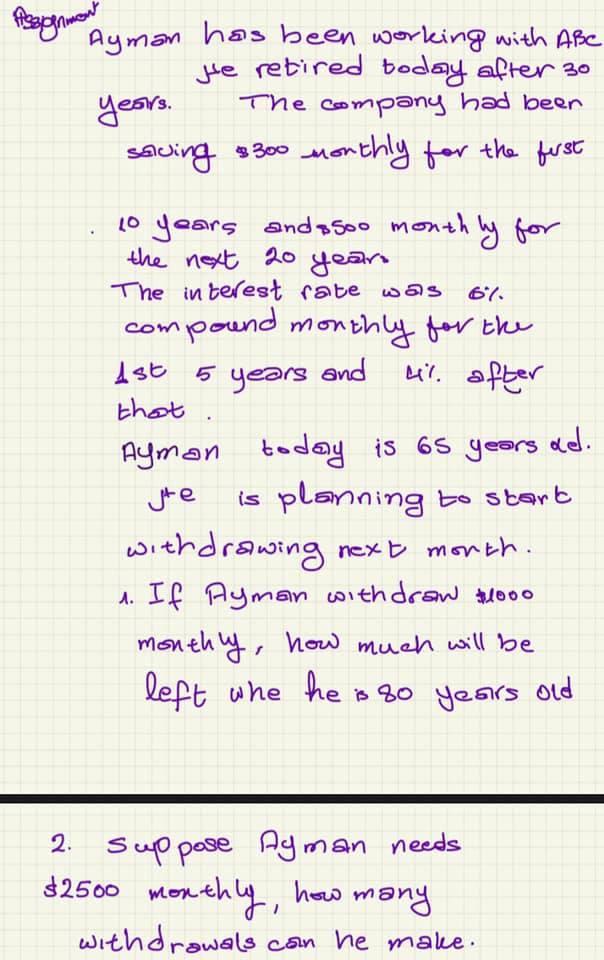 Assignment
Ayman has been working with ABC
He retired today after 30
years. The company had been
saving $300 monthly for the first
. 10 years and $500 monthly for
the next 20 years
The interest rate was 6%
compound monthly for the
1st 5 years and 4% after
that .
Ayman today is 65 years old.
He is planning to start
withdrawing next month.
1. If Ayman withdraw $1000
monthly, how much will be
left whe he is 80 years old
2. Suppose Ayman needs
$2500 monthly, how many
withdrawals can he make.